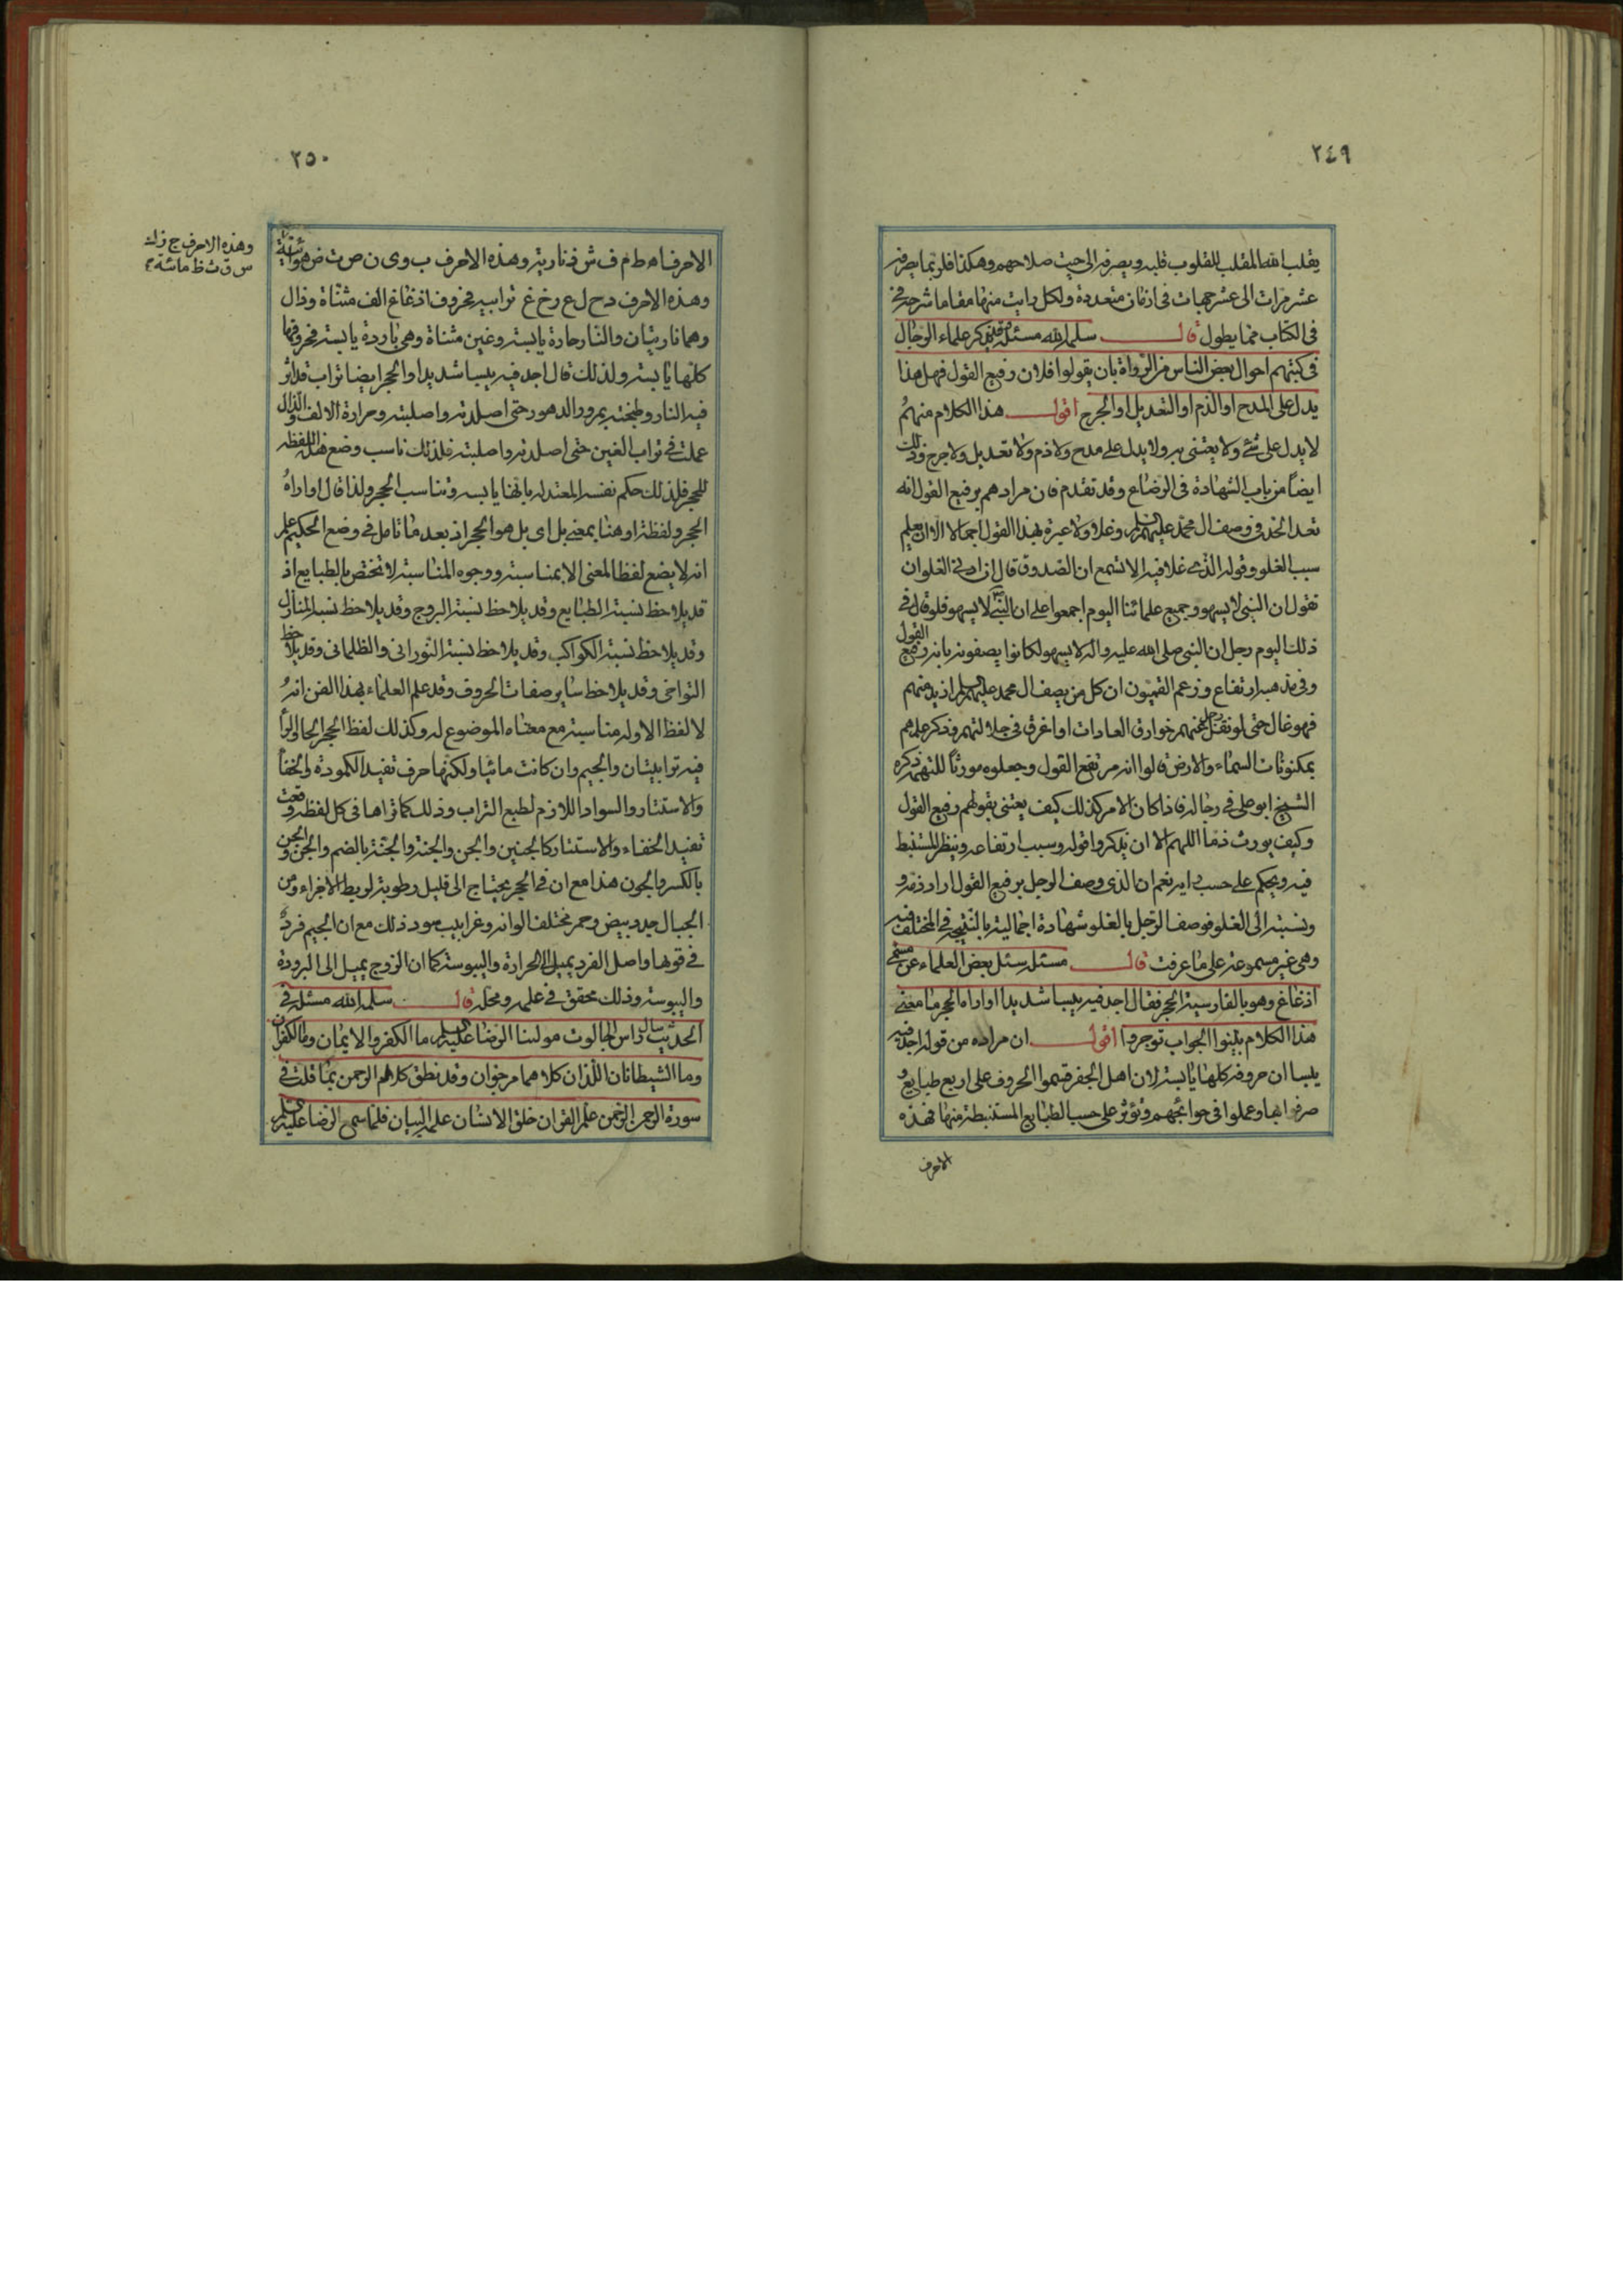 ٢٤٩
يقلب الله المقلب للقلوب قلبه ويصرفه الى حيث صلاحهم وهكذا فلربما يصرفه
عشر مرات الى عشر جهات فى ازمان متعددة ولكل رايت منها مقاما شرحه
فى الكتاب مما يطول قال سلمه الله مسئلة قد يذكر علماء الرجال
فى كتبهم احوال بعض الناس من الرواة بان يقولوا فلان رفيع القول فهل هذا
يدل على المدح او الذم او التعديل او الجرح اقول هذا الكلام منهم
لا يدل على شئ ولا يعتنى به ولا يدل على مدح ولا ذم ولا تعديل ولا جرح وذلك
ايضا من باب الشهادة فى الرضاع وقد تقدم فان مرادهم برفيع القول انه
تعد الحد فى وصف ال محمد عليهم السلم وغلا ولا عبرة بهذا القول اجمالا الا ان يعلم
سبب الغلو وقوله الذى غلا فيه الا تسمع ان الصدوق قال ان ادنى الغلو ان
تقول ان النبى لا يسهو وجميع علمائنا اليوم اجمعوا على ان النبى لا يسهو فلو قال فى
ذلك اليوم رجل ان النبى صلى الله عليه واله لا يسهو لكانوا يصفونه بانه رفيع القول
وفى مذهبه ارتفاع وزعم القميون ان كل من يصف ال محمد عليهم السلم ازيد منهم
فهو غال حتى لو نقل رجل عنهم خوارق العادات او اغرق فى جلالتهم وذكر علمهم
بمكنونات السماء والارض قالوا انه مرتفع القول وجعلوه مورثا للتهمة ذكره
الشيخ ابو على فى رجاله فاذا كان الامر كذلك كيف يعتنى بقولهم رفيع القول
وكيف يورث ذما اللهم الا ان يذكروا قوله وسبب ارتفاعه وينظر المستنبط
فيه ويحكم على حسب رايه نعم ان الذى وصف الرجل برفيع القول اراد ذمه و
ونسبته الى الغلو فوصف الرجل بالغلو شهادة اجمالية بالنتيجة فى المختلف فيه
وهى غير مسموعة على ما عرفت قال مسئلة سئل بعض العلماء عن مسمى
اذغاغ وهو بالفارسية الحجر فقال اجد فيه يبسا شديدا او اراه الحجر ما معنى
هذا الكلام بينوا الجواب توجروا اقول ان مراده من قوله اجد فيه
يبسا ان حروفه كلها يابسة لان اهل الجفر قسموا الحروف على اربع طبايع و
صرفوها وعملوا فى حوائجهم وتؤثر على حسب الطبايع المستنبطة منها فهذه
الاحرف
٢٥٠
الاحرف ا ه ط م ف ش ذ نارية وهذه الاحرف ب و ى ن ص ت ض هوائية
وهذه الاحرف ج ز ك
س ق ث ظ مائية
وهذه الاحرف د ح ل ع ر خ غ ترابية فحروف اذغاغ الف مثناة وذال
وهما ناريتان والنار حارة يابسة وغين مثناة وهى باردة يابسة فحروفها
كلها يابسة ولذلك قال اجد فيه يبسا شديدا والحجر ايضا تراب قد اثر
فيه النار وطبخته بمرور الدهور حتى اصلدته واصلبته وحرارة الالف والذال
عملت فى تراب الغين حتى اصلدته واصلبته فلذلك ناسب وضع هذا اللفظ
للحجر فلذلك حكم نفسه المعتدلة بانها يابسة وتناسب الحجر ولذا قال او اراه
الحجر ولفظة او هنا بمعنى بل اى بل هو الحجر اذ بعد ما تامل فى وضع الحكيم علم
انه لا يضع لفظا لمعنى الا بمناسبة ووجوه المناسبة لا تختص بالطبايع اذ
قد يلاحظ نسبة الطبايع وقد يلاحظ نسبة البروج وقد يلاحظ نسبة المنازل
وقد يلاحظ نسبة الكواكب وقد يلاحظ نسبة النورانى والظلمانى وقد يلاحظ
التواخى وقد يلاحظ ساير صفات الحروف وقد علم العلماء بهذا الفن انه
لا لفظ الا وله مناسبة مع معناه الموضوع له وكذلك لفظ الحجر الحا والرا
فيه ترابيتان والجيم وان كانت مائيا ولكنها حرف تفيد الكمودة والخفا
والاستتار والسواد اللازم لطبع التراب وذلك كما تراها فى كل لفظة وقعت
تفيد الخفاء والاستتار كالجنين والجن والجنة والجنة بالضم والجن والجن
بالكسر والجون هذا مع ان فى الحجر يحتاج الى قليل رطوبة لربط الاجزاء ومن
الجبال جدد بيض وحمر مختلف الوانه وغرابيب سود ذلك مع ان الجيم فرد
فى قوها واصل الفرد يميل الى الحرارة واليبوسة كما ان الزوج يميل الى البرودة
واليبوسة وذلك محقق فى علمه ومحله قال سلمه الله مسئلة فى
الحديث سال راس الجالوت مولينا الرضا عليه السلم ما الكفر والايمان وما الكفران
وما الشيطانان اللذان كلاهما مرجوان وقد نطق كلام الرحمن بما قلت فى
سورة الرحمن الرحمن علم القران خلق الانسان علمه البيان فلما سمع الرضا عليه السلم